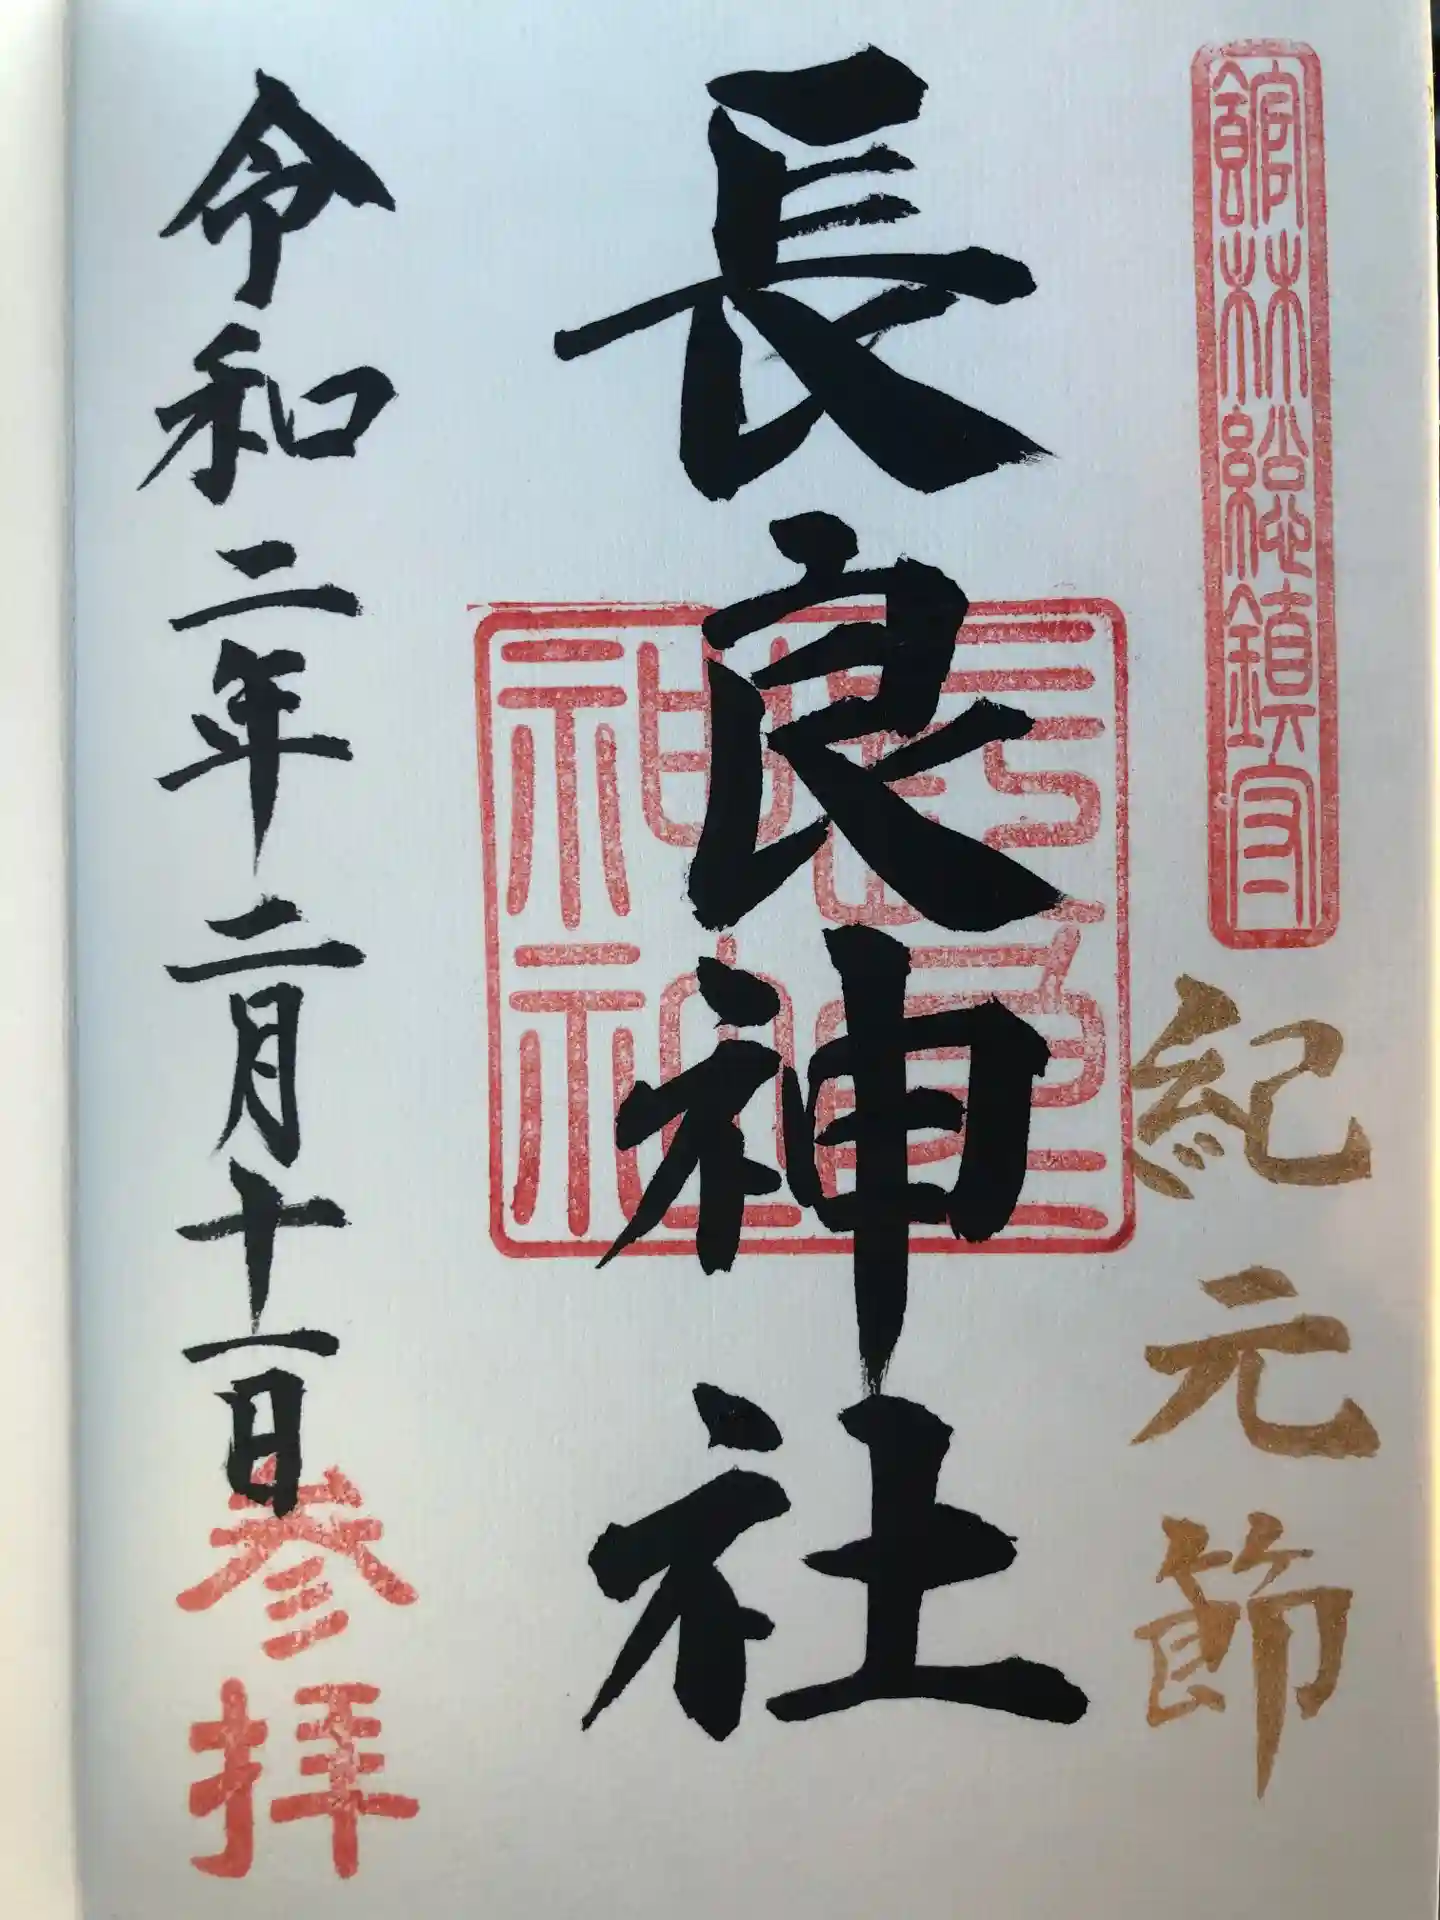 館林総鎮守
紀元節
長良神社
長良神社
令和二年二月十一日
参拝